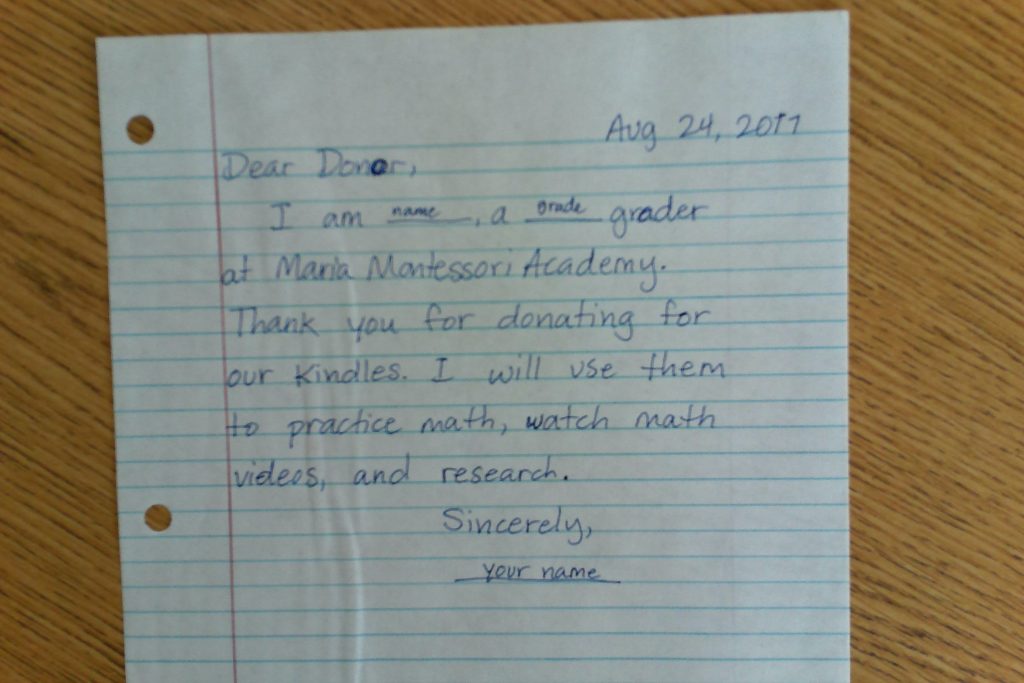 Aug 24, 2011
Dear Donor,
I am name, a grade grader
at Maria Montessori Academy.
Thank you for donating for
our Kindles. I will use them
to practice math, watch math
videos, and research.
Sincerely,
your name